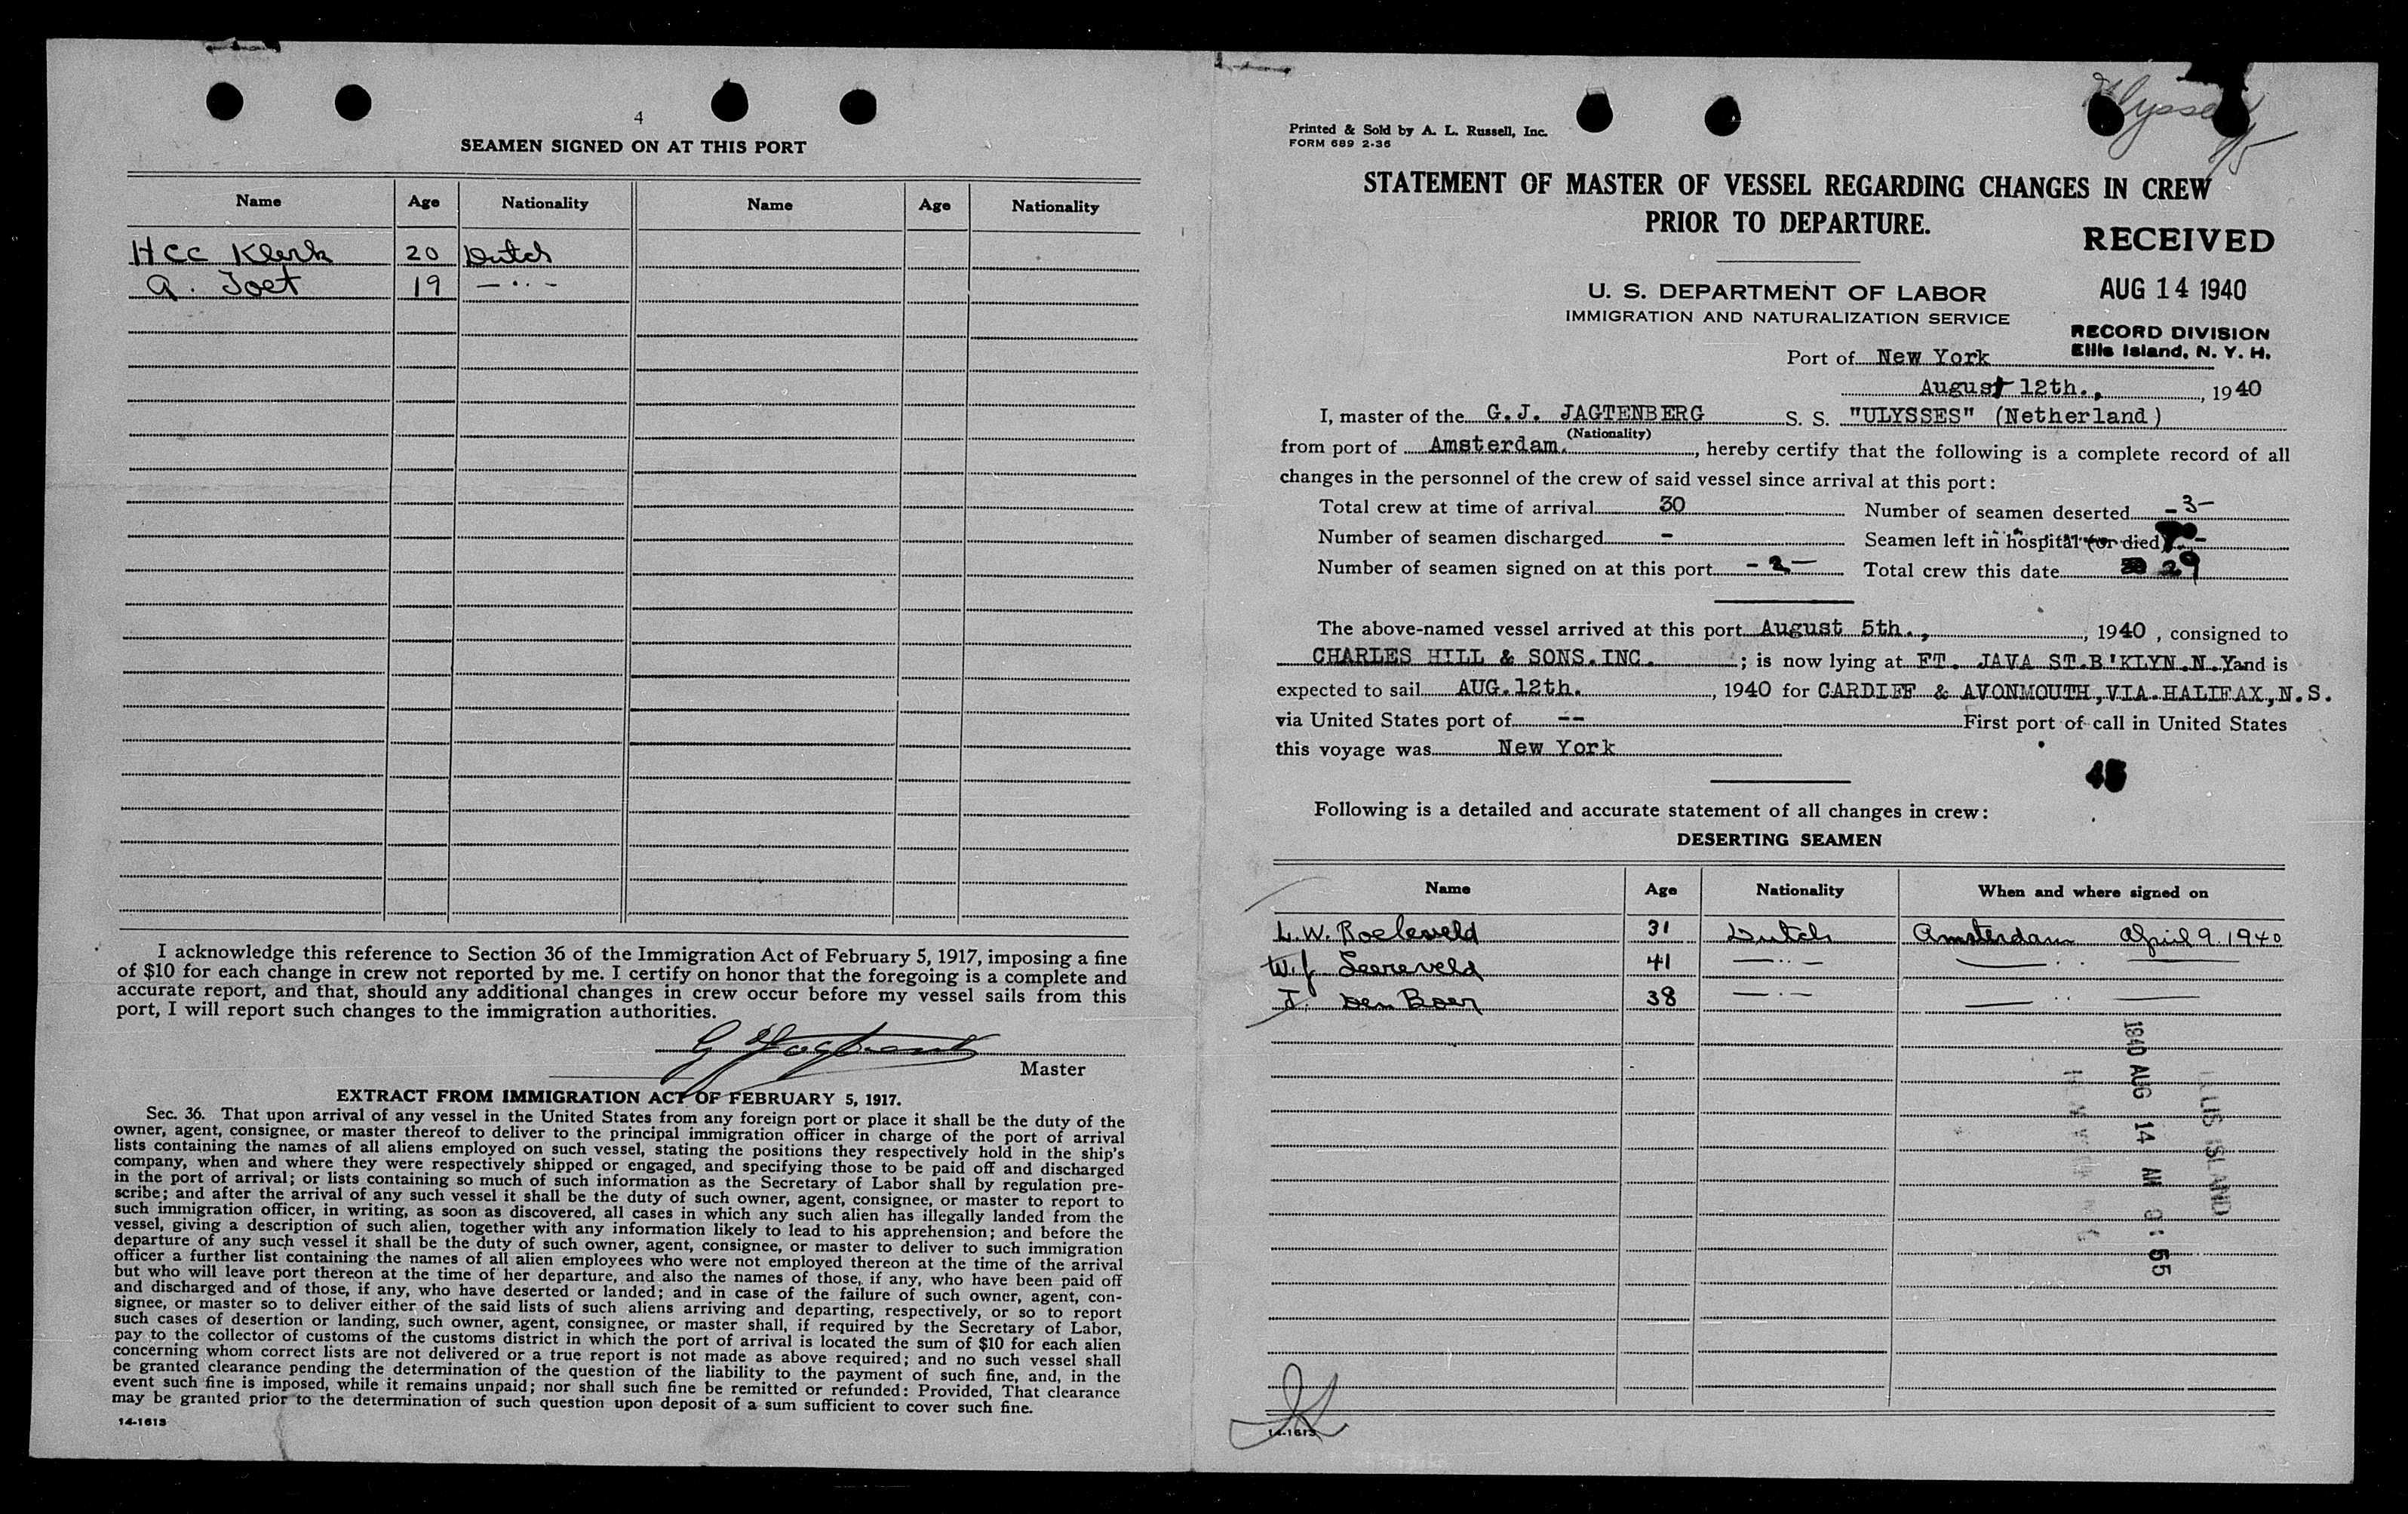 4
SEAMEN SIGNED ON AT THIS PORT
Name Age Nationality Name Age Nationality
HCC Klerk 20 Dutch
A. Toet 19 — ·· —
I acknowledge this reference to Section 36 of the Immigration Act of February 5, 1917, imposing a fine
of $10 for each change in crew not reported by me. I certify on honor that the foregoing is a complete and
accurate report, and that, should any additional changes in crew occur before my vessel sails from this
port, I will report such changes to the immigration authorities.
Master
EXTRACT FROM IMMIGRATION ACT OF FEBRUARY 5, 1917.
Sec. 36. That upon arrival of any vessel in the United States from any foreign port or place it shall be the duty of the
owner, agent, consignee, or master thereof to deliver to the principal immigration officer in charge of the port of arrival
lists containing the names of all aliens employed on such vessel, stating the positions they respectively hold in the ship's
company, when and where they were respectively shipped or engaged, and specifying those to be paid off and discharged
in the port of arrival; or lists containing so much of such information as the Secretary of Labor shall by regulation pre-
scribe; and after the arrival of any such vessel it shall be the duty of such owner, agent, consignee, or master to report to
such immigration officer, in writing, as soon as discovered, all cases in which any such alien has illegally landed from the
vessel, giving a description of such alien, together with any information likely to lead to his apprehension; and before the
departure of any such vessel it shall be the duty of such owner, agent, consignee, or master to deliver to such immigration
officer a further list containing the names of all alien employees who were not employed thereon at the time of the arrival
but who will leave port thereon at the time of her departure, and also the names of those, if any, who have been paid off
and discharged and of those, if any, who have deserted or landed; and in case of the failure of such owner, agent, con-
signee, or master so to deliver either of the said lists of such aliens arriving and departing, respectively, or so to report
such cases of desertion or landing, such owner, agent, consignee, or master shall, if required by the Secretary of Labor,
pay to the collector of customs of the customs district in which the port of arrival is located the sum of $10 for each alien
concerning whom correct lists are not delivered or a true report is not made as above required; and no such vessel shall
be granted clearance pending the determination of the question of the liability to the payment of such fine, and, in the
event such fine is imposed, while it remains unpaid; nor shall such fine be remitted or refunded: Provided, That clearance
may be granted prior to the determination of such question upon deposit of a sum sufficient to cover such fine.
14-1613
Ulysses
8/5
Printed & Sold by A. L. Russell, Inc.
FORM 689 2-36
STATEMENT OF MASTER OF VESSEL REGARDING CHANGES IN CREW
PRIOR TO DEPARTURE.
RECEIVED
AUG 14 1940
RECORD DIVISION
Ellis Island, N. Y. H.
U. S. DEPARTMENT OF LABOR
IMMIGRATION AND NATURALIZATION SERVICE
Port of New York
August 12th., , 1940
I, master of the G.J. JAGTENBERG S. S. "ULYSSES" (Netherland)
(Nationality)
from port of Amsterdam. , hereby certify that the following is a complete record of all
changes in the personnel of the crew of said vessel since arrival at this port:
Total crew at time of arrival 30 Number of seamen deserted -3-
Number of seamen discharged - Seamen left in hospital (or died) -
Number of seamen signed on at this port -2- Total crew this date 29
The above-named vessel arrived at this port August 5th., , 1940 , consigned to
CHARLES HILL & SONS.INC. ; is now lying at FT. JAVA ST.B'KLYN.N.Y and is
expected to sail AUG.12th. , 1940 for CARDIFF & AVONMOUTH,VIA.HALIFAX,N.S.
via United States port of -- First port of call in United States
this voyage was New York
Following is a detailed and accurate statement of all changes in crew:
DESERTING SEAMEN
Name Age Nationality When and where signed on
L.W. Roeleveld 31 Dutch Amsterdam April 9. 1940
W.J. Leereveld 41 — ·· — — ·· —
J. Den Boer 38 — ·· — — ·· —
1940 AUG 14 AM 9:55
ELLIS ISLAND
14-1613